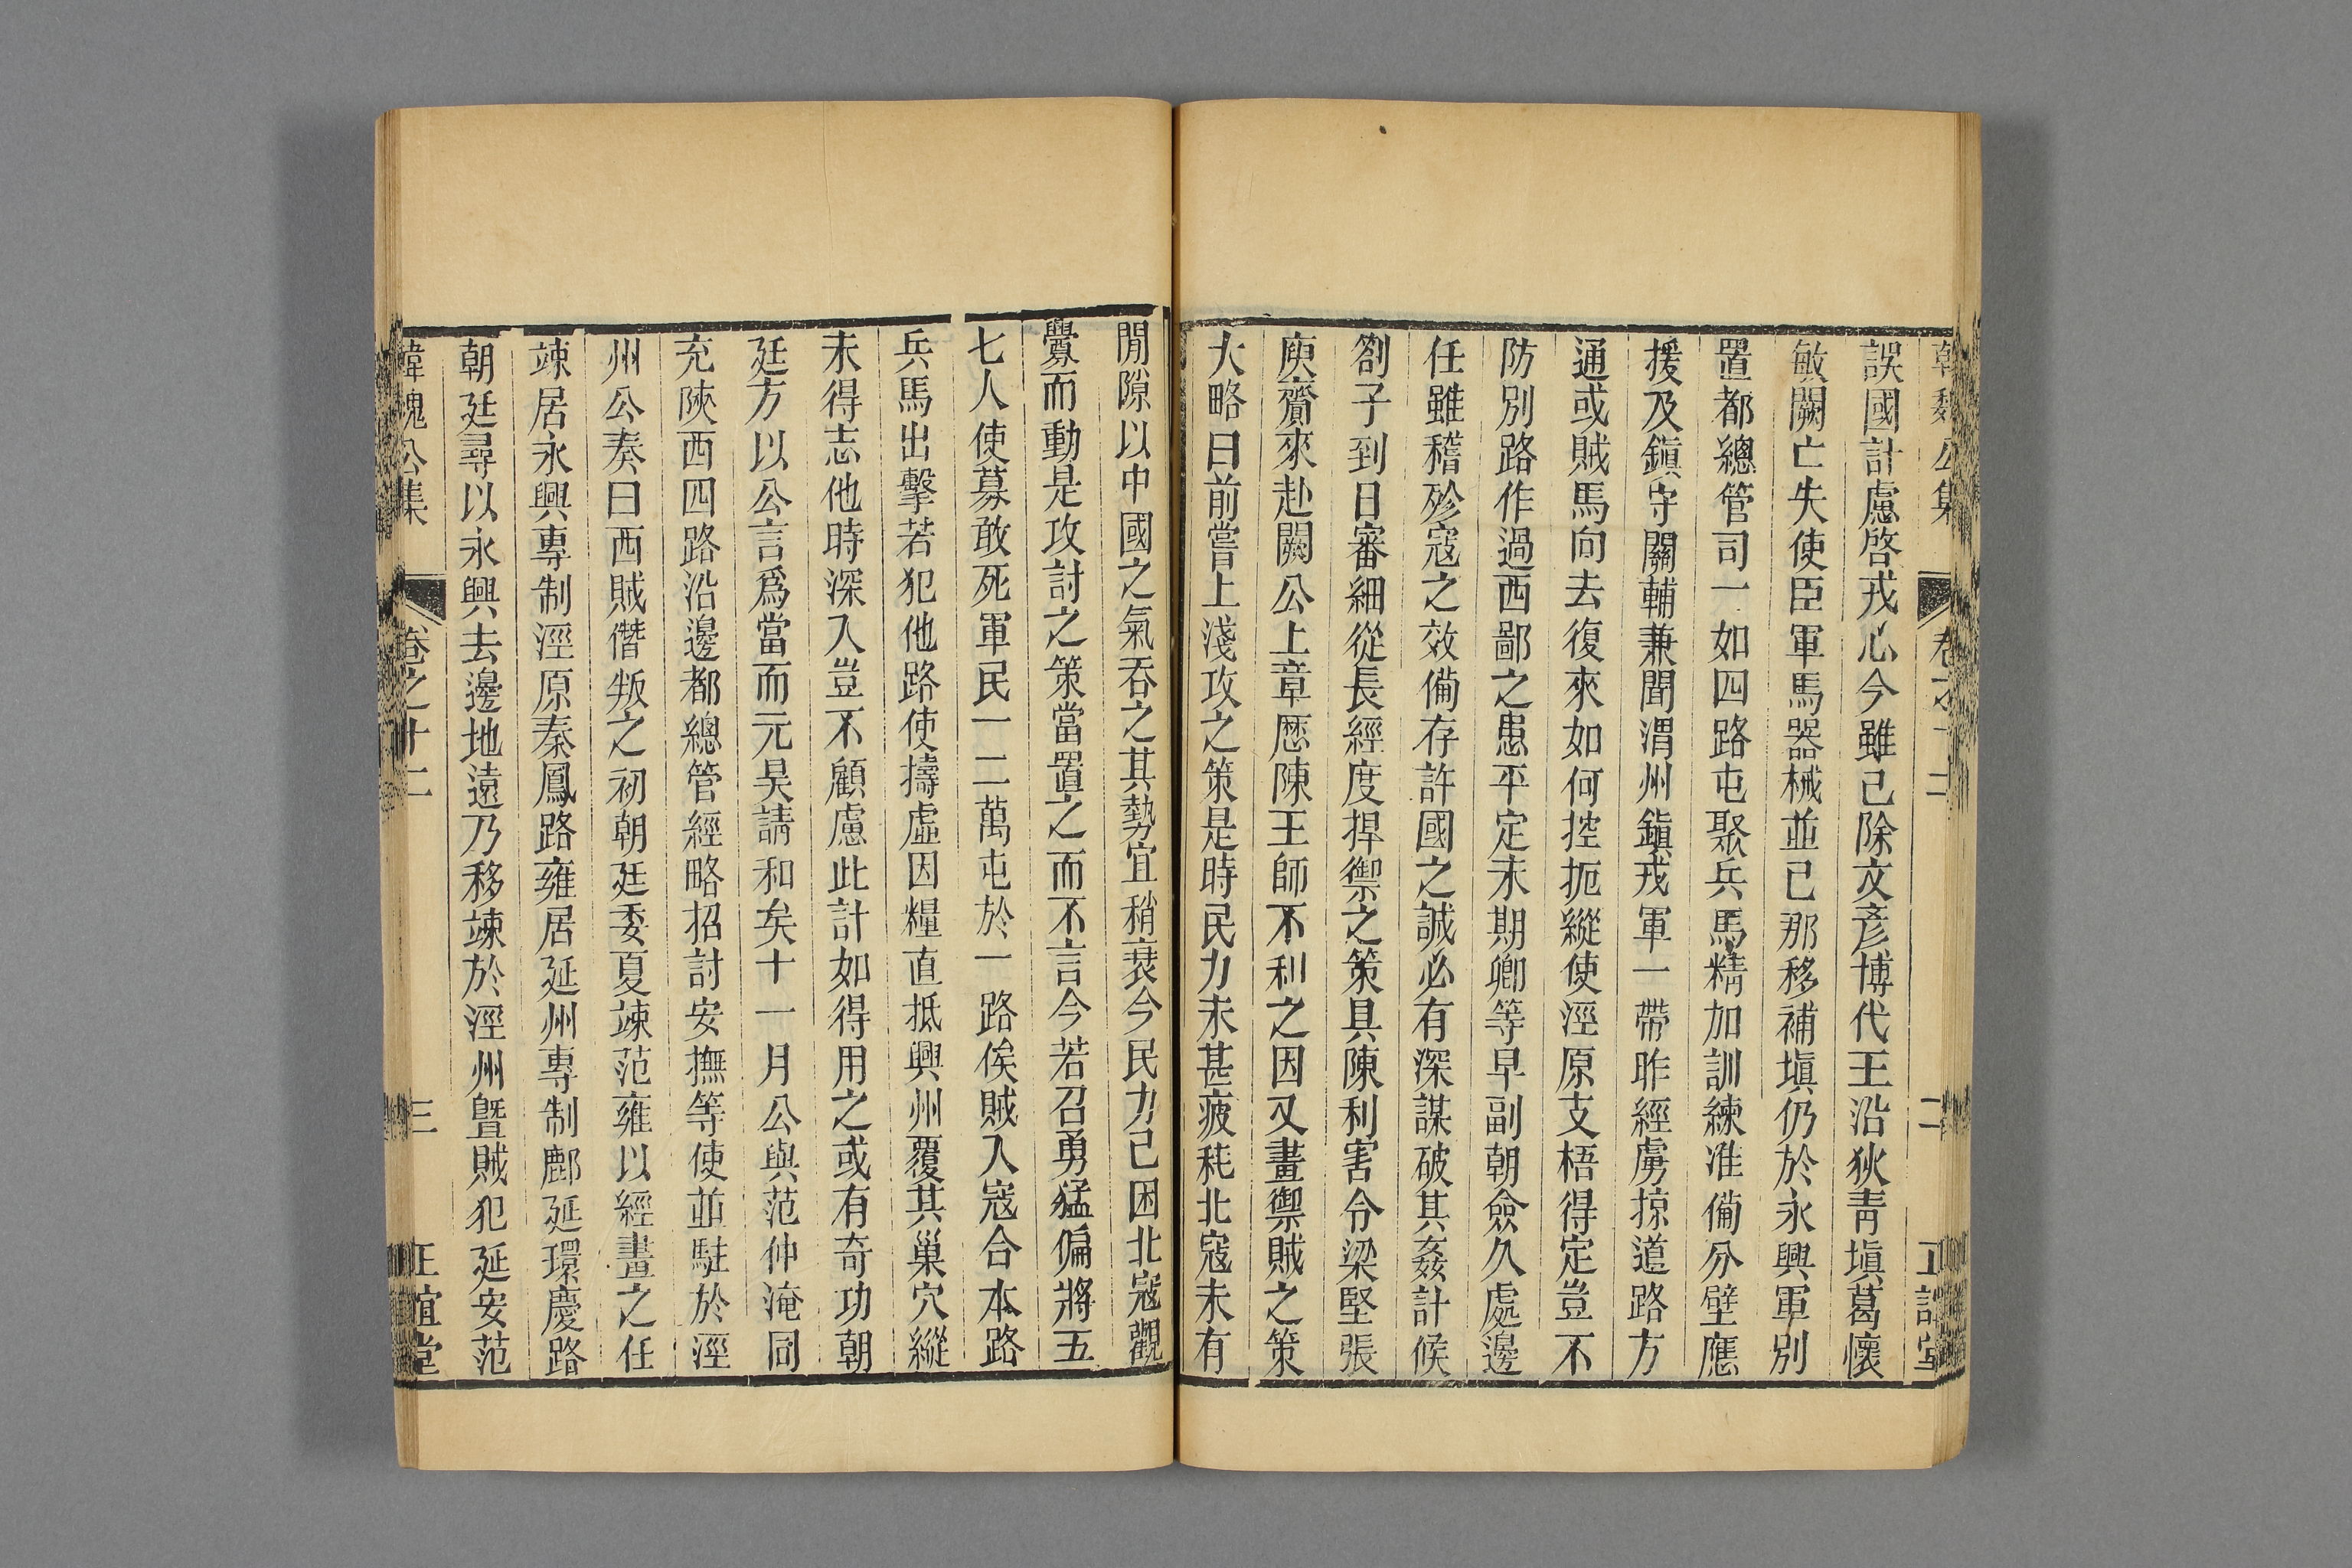 韓魏公集 卷之十二 二 正誼堂
誤國計慮啓戎心今雖已除文彥博代王沿狄靑塡葛懷
敏闕亡失使臣軍馬器械並已那移補塡仍於永興軍別
置都總管司一如四路屯聚兵馬精加訓練准備分壁應
援及鎭守關輔兼聞渭州鎭戎軍一帶昨經虜掠道路方
通或賊馬向去復來如何控扼縱使涇原支梧得定豈不
防別路作過西鄙之患平定未期卿等早副朝僉久處邊
任雖稽殄寇之效備存許國之誠必有深謀破其姦計候
劄子到日審細從長經度捍禦之策具陳利害令梁堅張
庾齎來赴闕公上章歷陳王師不利之因又畫禦賊之策
大略曰前嘗上淺攻之策是時民力未甚疲秏北寇未有
閒隙以中國之氣吞之其勢宜稍衰今民力已困北寇觀
釁而動是攻討之策當置之而不言今若召勇猛偏將五
七人使募敢死軍民一二萬屯於一路俟賊入寇合本路
兵馬出擊若犯他路使擣虛因糧直抵興州覆其巢穴縱
未得志他時深入豈不顧慮此計如得用之或有奇功朝
廷方以公言爲當而元昊請和矣十一月公與范仲淹同
充陝西四路沿邊都總管經略招討安撫等使並駐於涇
州公奏曰西賊僭叛之初朝廷委夏竦范雍以經畫之任
竦居永興專制涇原秦鳳路雍居延州專制鄜延環慶路
朝廷尋以永興去邊地遠乃移竦於涇州曁賊犯延安范
韓魏公集 卷之十二 三 正誼堂